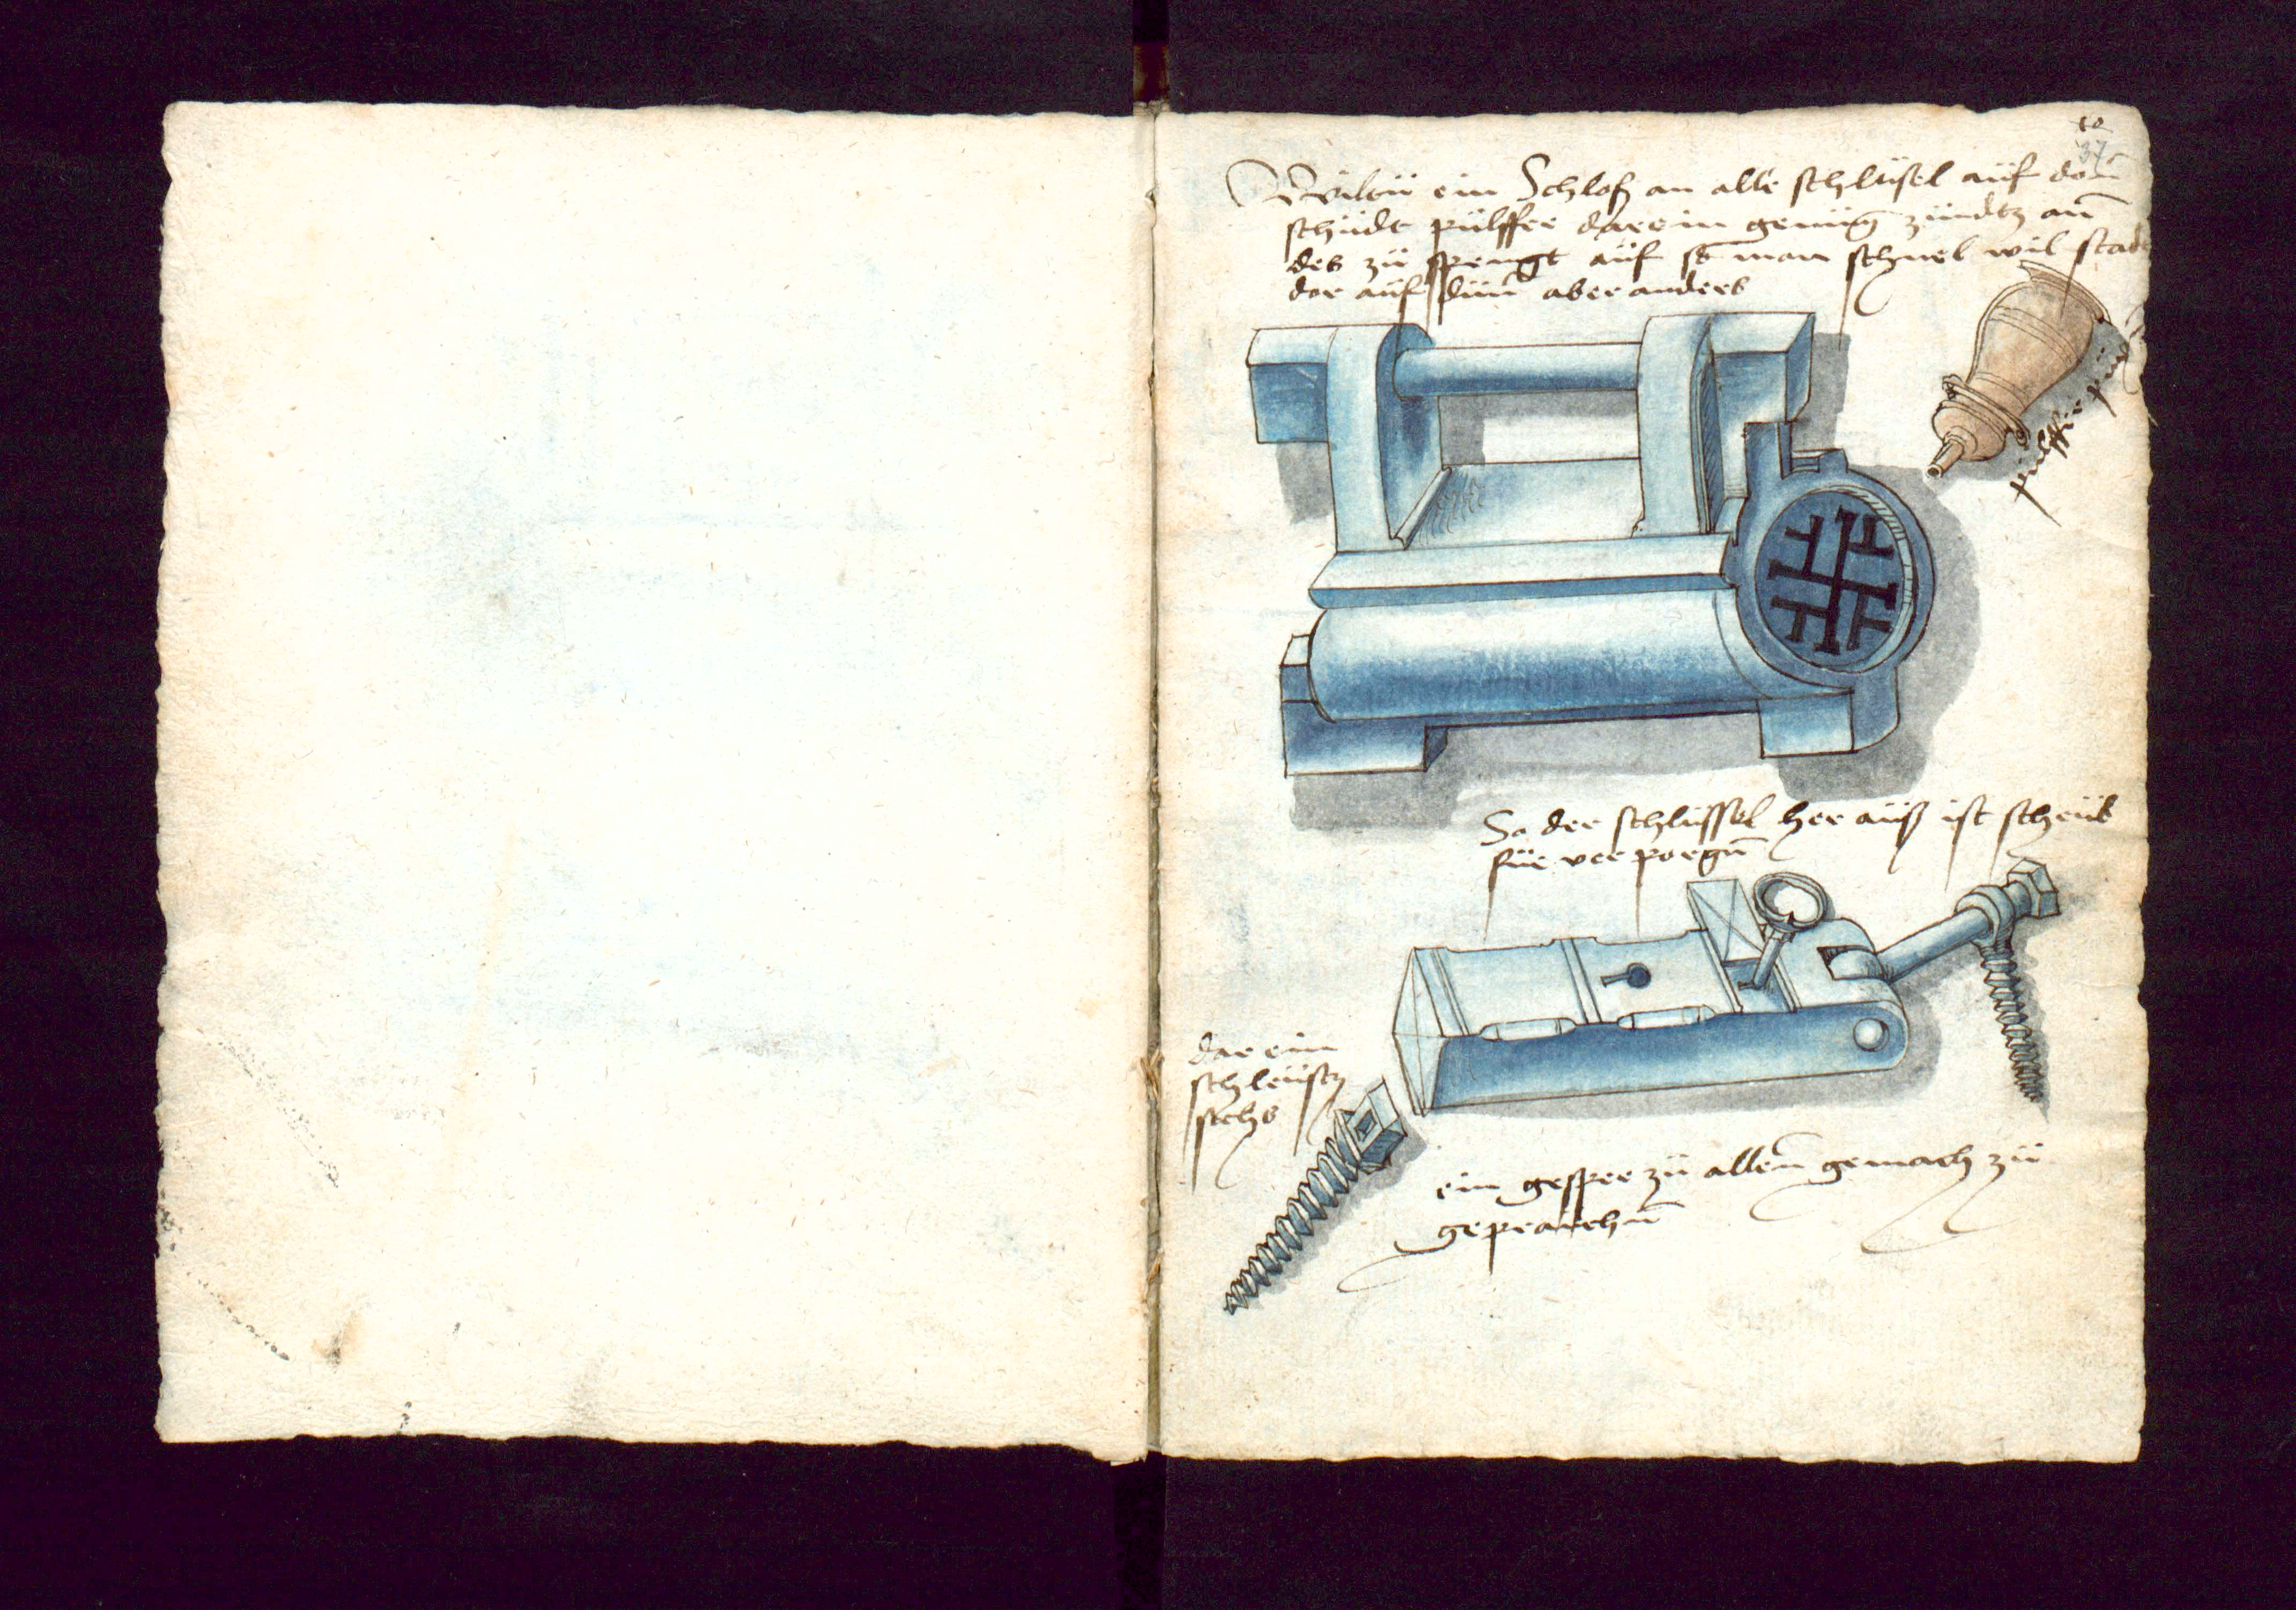 10
37
Wiltü ein Schloß an alle schlüsel auf don̄
schüdt pülffer darein genüg zündtz an
des zü spengt auf so man schnel wil
dor auf dün̄ aber anders
pülffer
So der schlüssel her auß ist scheüb
für ver porgn̄
dar ein
schleüstz
sichs
ein gesper zü allen̄ gemach zü
geprauchn̄